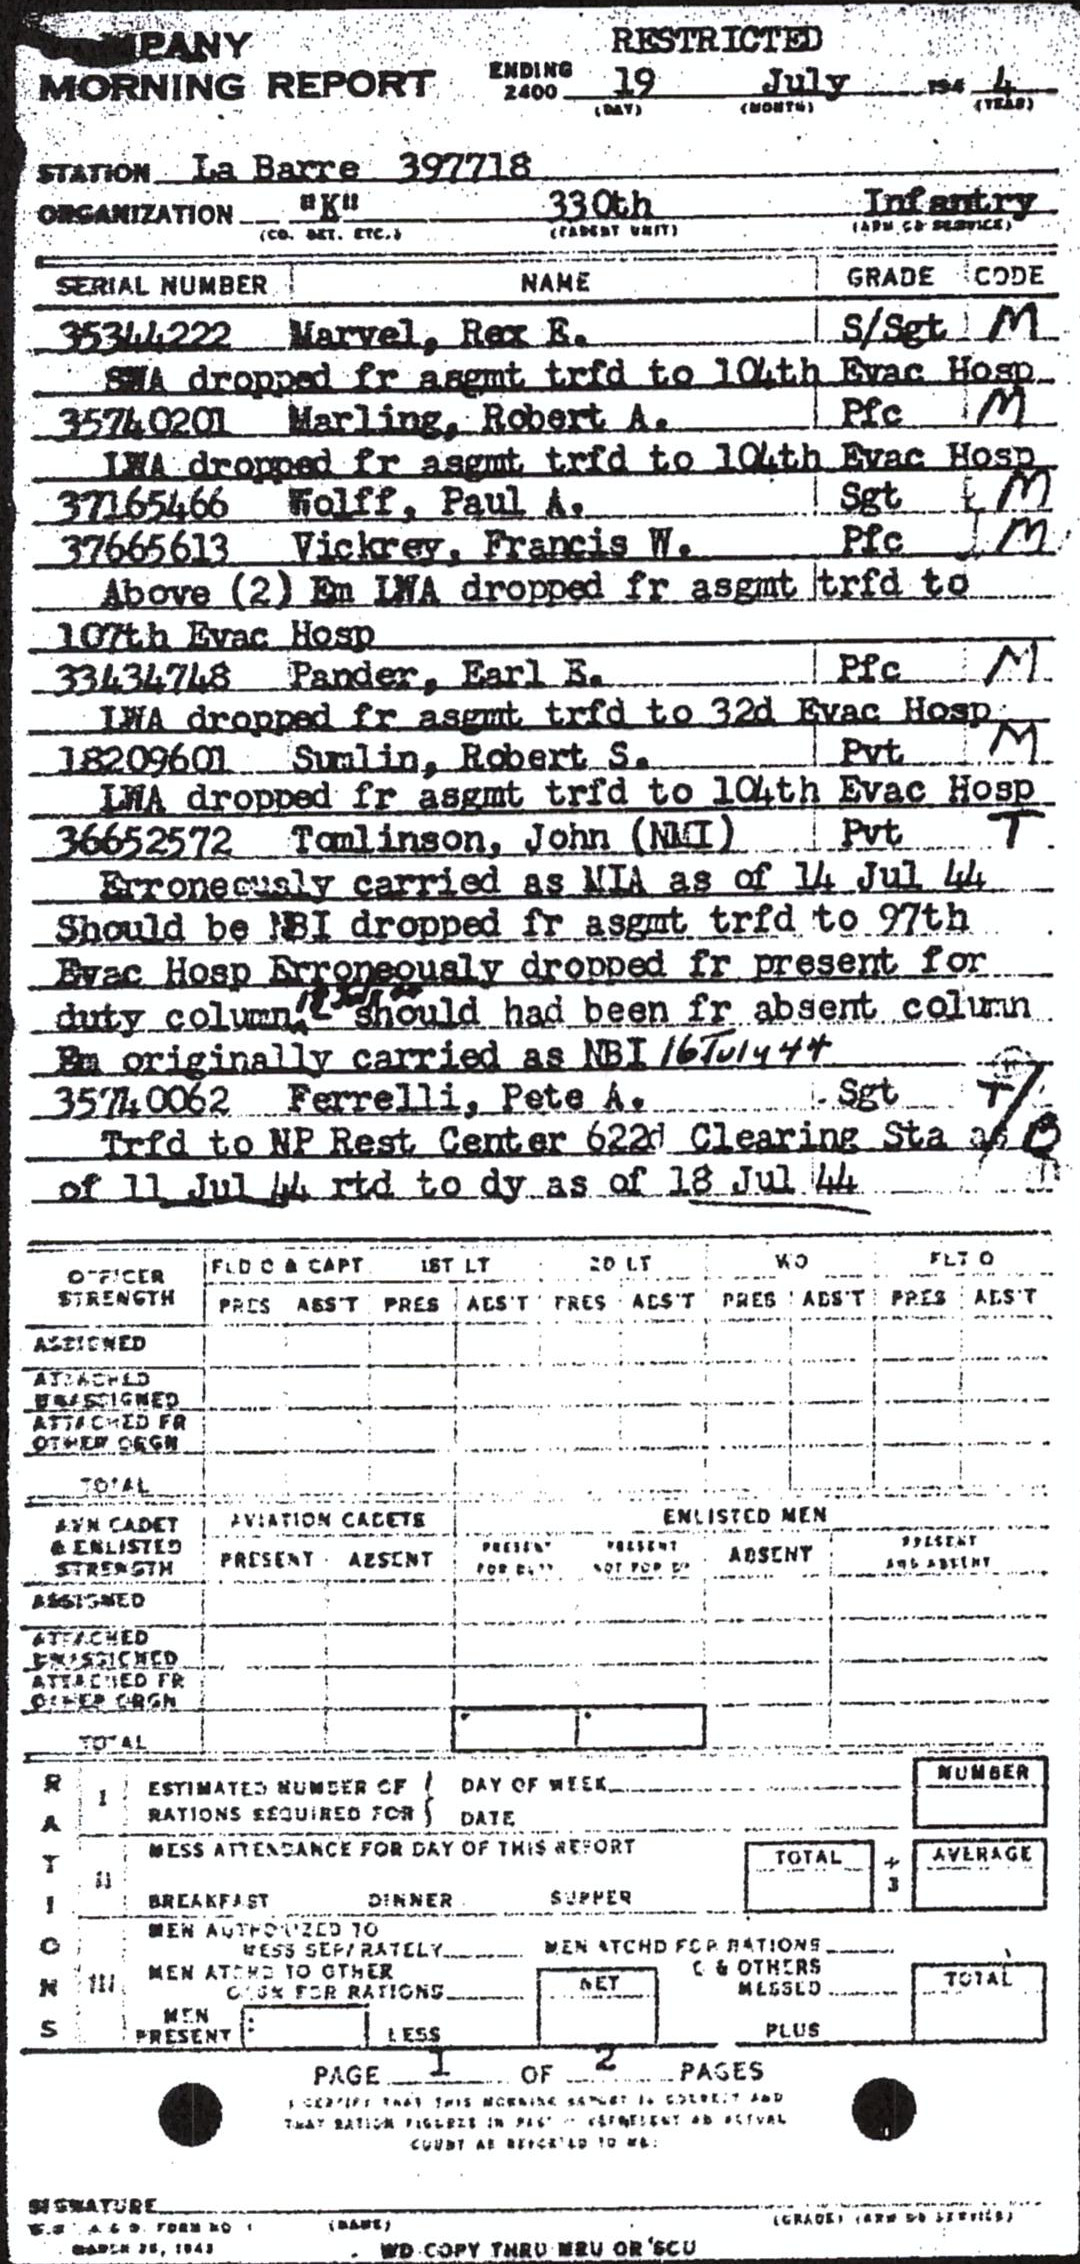 RESTRICTED
MORNING REPORT ENDING 2400 19 July 194 4
(DAY) (MONTH) (YEAR)
STATION La Barre 397718
ORGANIZATION "K" 330th Infantry
(CO. DET. ETC.) (PARENT UNIT) (ARM OR SERVICE)
SERIAL NUMBER NAME GRADE CODE
35344222 Marvel, Rex E. S/Sgt M
SWA dropped fr asgmt trfd to 104th Evac Hosp
35740201 Marling, Robert A. Pfc M
LWA dropped fr asgmt trfd to 104th Evac Hosp
37165466 Wolff, Paul A. Sgt M
37665613 Vickrey, Francis W. Pfc M
Above (2) Em LWA dropped fr asgmt trfd to
107th Evac Hosp
33434748 Pander, Earl E. Pfc M
LWA dropped fr asgmt trfd to 32d Evac Hosp
18209601 Sumlin, Robert S. Pvt M
LWA dropped fr asgmt trfd to 104th Evac Hosp
36652572 Tomlinson, John (NMI) Pvt T
Erroneously carried as MIA as of 14 Jul 44
Should be NBI dropped fr asgmt trfd to 97th
Evac Hosp Erroneously dropped fr present for
duty column should had been fr absent column
Em originally carried as NBI 16 July 44
35740062 Ferrelli, Pete A. Sgt T/B
Trfd to NP Rest Center 622d Clearing Sta as
of 11 Jul 44 rtd to dy as of 18 Jul 44
OFFICER STRENGTH FLD O & CAPT 1ST LT 2D LT WO FLT O
PRES ABS'T PRES ABS'T PRES ABS'T PRES ABS'T PRES ABS'T
ASSIGNED
ATTACHED
UNASSIGNED
ATTACHED FR
OTHER ORGN
TOTAL
AVN CADET & ENLISTED STRENGTH AVIATION CADETS ENLISTED MEN
PRESENT ABSENT PRESENT FOR DUTY PRESENT NOT FOR DY ABSENT PRESENT AND ABSENT
ASSIGNED
ATTACHED
UNASSIGNED
ATTACHED FR
OTHER ORGN
TOTAL
RATIONS
I ESTIMATED NUMBER OF RATIONS REQUIRED FOR DAY OF WEEK NUMBER
DATE
II MESS ATTENDANCE FOR DAY OF THIS REPORT TOTAL ÷ 3 AVERAGE
BREAKFAST DINNER SUPPER
III MEN AUTHORIZED TO
MESS SEPARATELY MEN ATCHD FOR RATIONS
MEN ATCHD TO OTHER NET & OTHERS TOTAL
ORGN FOR RATIONS MESSED
MEN PRESENT LESS PLUS
PAGE 1 OF 2 PAGES
I CERTIFY THAT THIS MORNING REPORT IS CORRECT AND
THAT RATION FIGURES IN PART REPRESENT AN ACTUAL
COUNT AS REPORTED TO ME:
SIGNATURE
(NAME) (GRADE) (ARM OR SERVICE)
FORM NO 1
MARCH 1943 WD COPY THRU MRU OR SCU